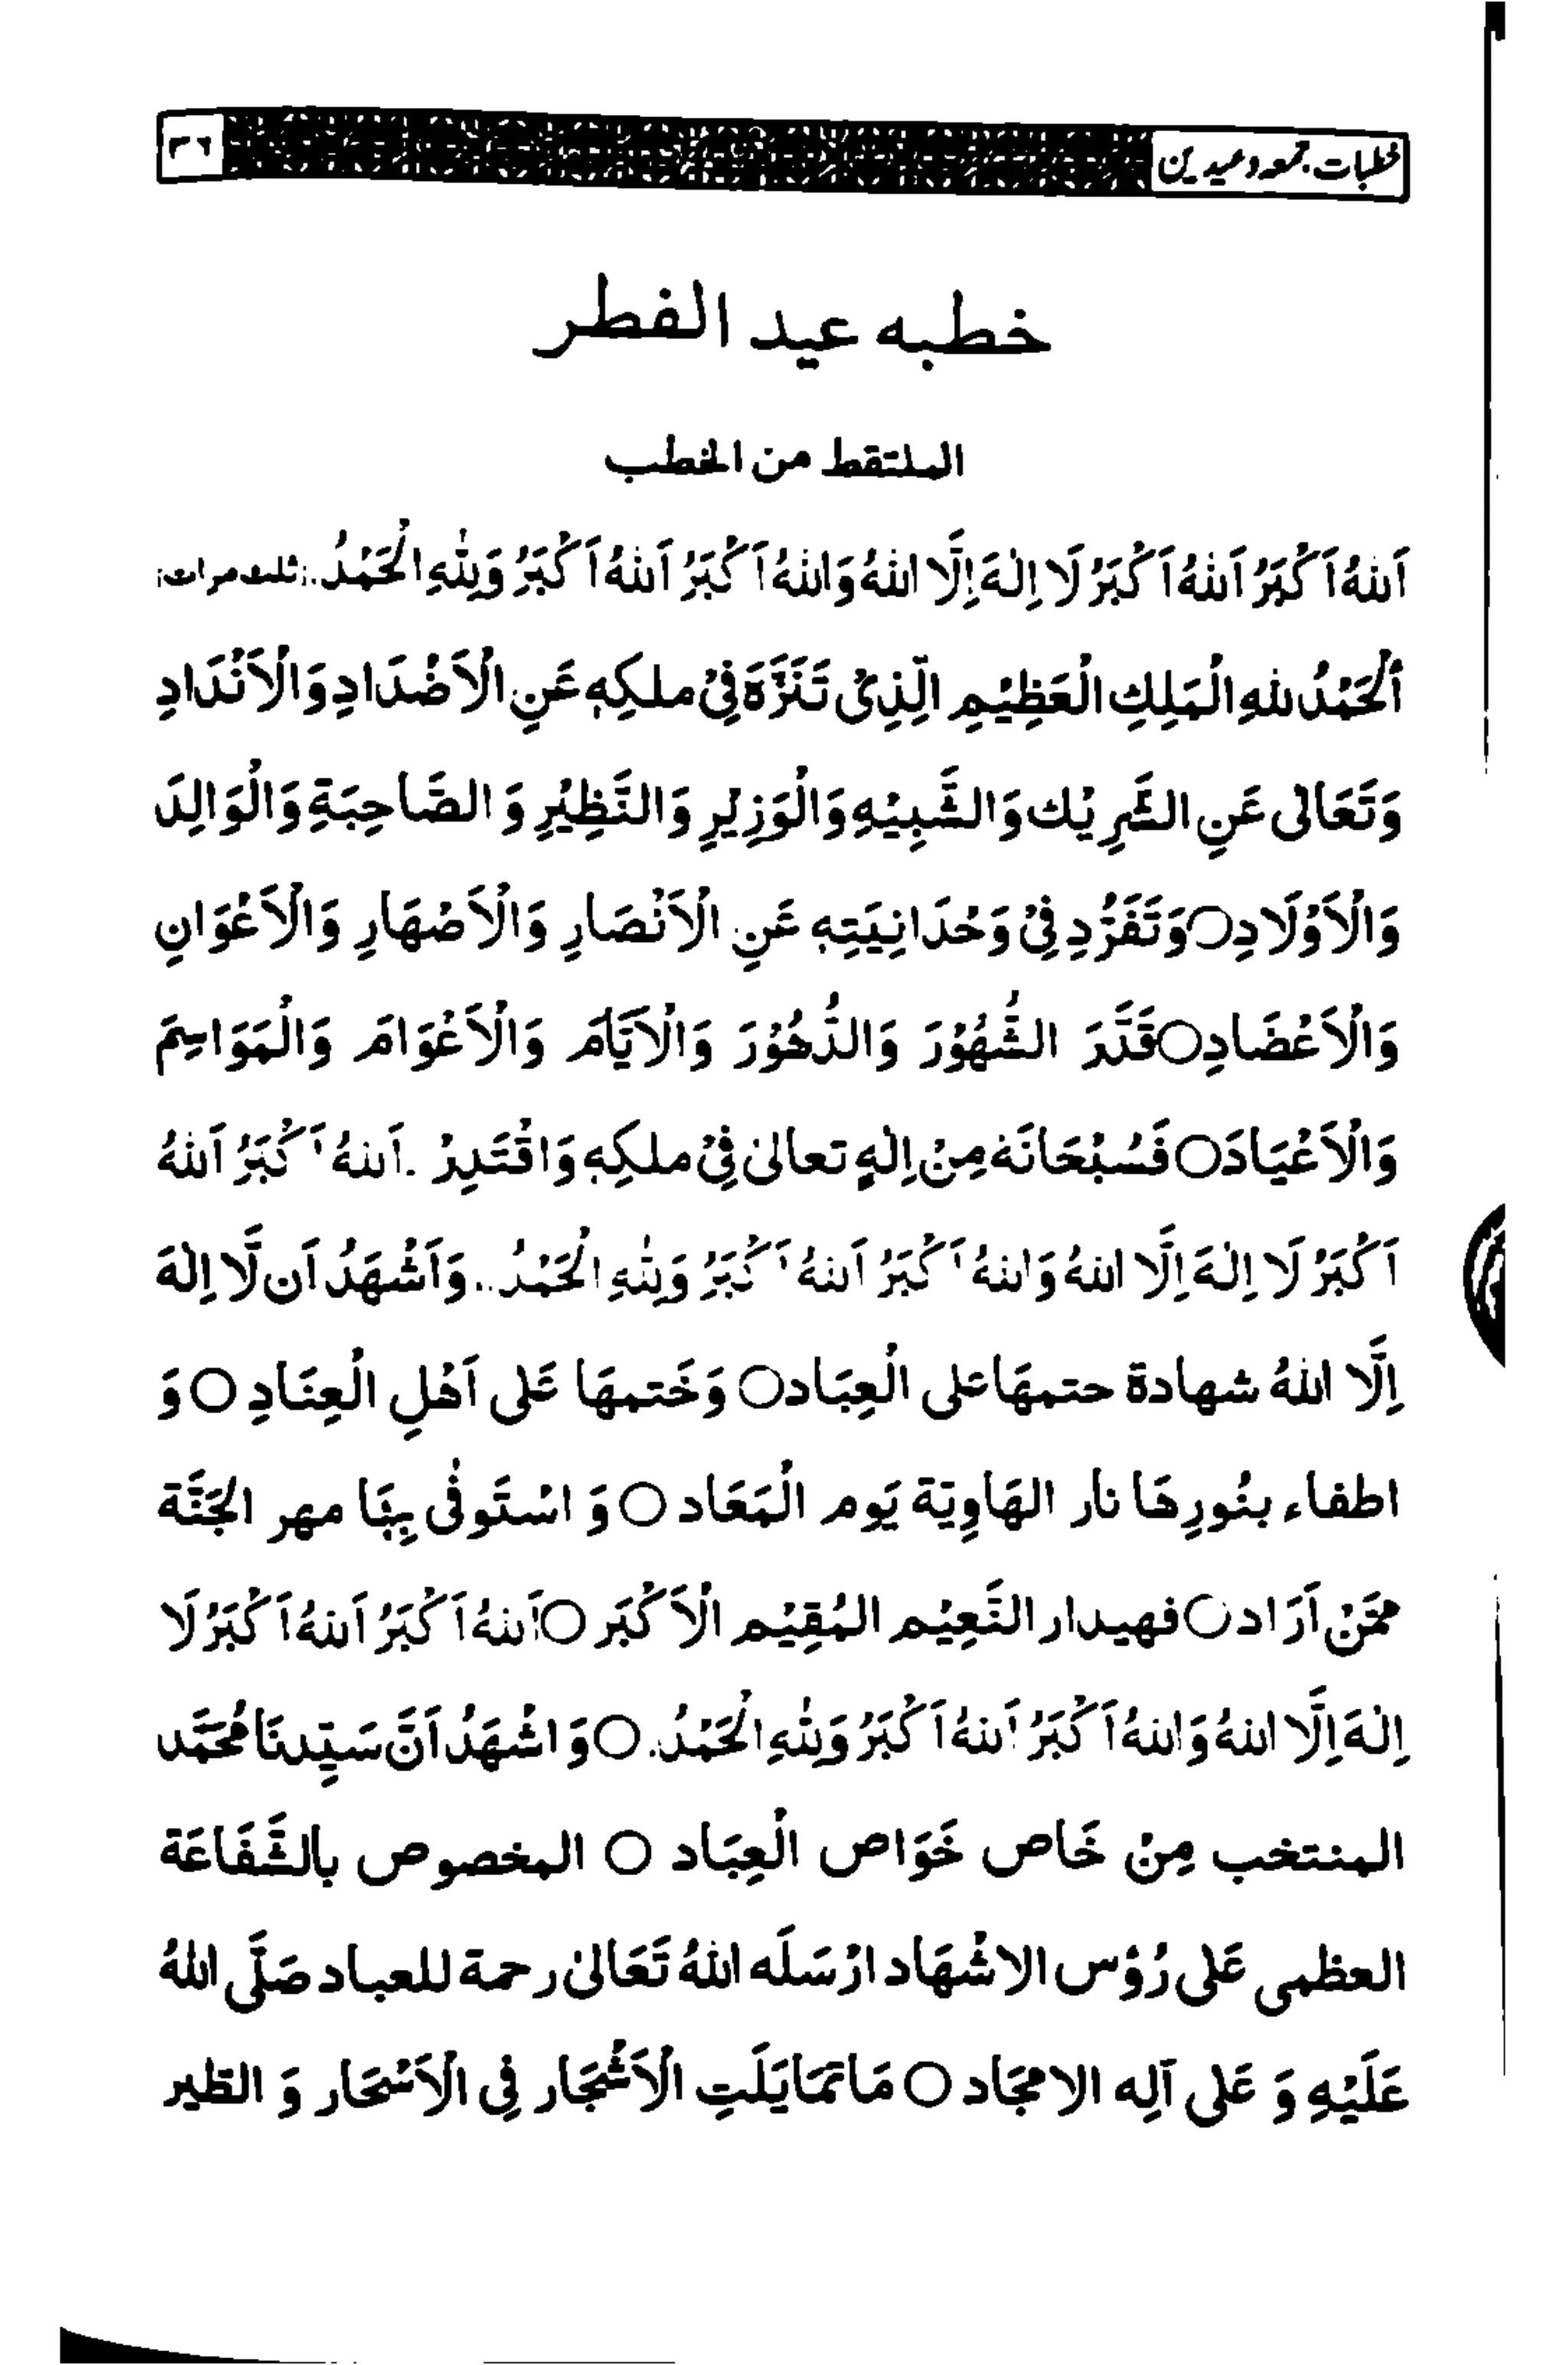 خطبات جمعہ و عیدین
۳۶
خطبه عيد الفطر
الملتقط من الخطب
اَللهُ اَكْبَرُ اَللهُ اَكْبَرُ لَا اِلٰهَ اِلَّا اللهُ وَاللهُ اَكْبَرُ اَللهُ اَكْبَرُ وَلِلّٰهِ الْحَمْدُ. :ثلث مرات:
اَلْحَمْدُ للهِ الْمَلِكِ الْعَظِيْمِ الَّذِىْ تَنَزَّهَ فِىْ ملكِهٖ عَنِ الْاَضْدَادِ وَالْاَنْدَادِ
وَتَعَالىٰ عَنِ الشَّرِيْك وَالشَّبِيْهِ وَالْوَزِيْرِ وَالنَّظِيْرِ وَ الصَّاحِبَةِ وَالْوَالِدَ
وَالْاَوْلَادِ○وَتَفَرُّدِ فِىْ وَحْدَانِيَتِهٖ عَنِ الْاَنْصَارِ وَالْاَصْهَارِ وَالْاَعْوَانِ
وَالْاَعْضَادِ○قَدَّرَ الشُّهُوْرَ وَالدُّهُوْرَ وَالْاَيَّامَ وَالْاَعْوَامَ وَالْمَوَاسِمَ
وَالْاَعْيَادَ○فَسُبْحَانَهٗ مِنْ اِلٰهٍ تعالىٰ فِىْ ملكِهٖ وَاقْتَدِرُ .اَللهُ اَكْبَرُ اَللهُ
اَكْبَرُ لَا اِلٰهَ اِلَّا اللهُ وَاللهُ اَكْبَرُ اَللهُ اَكْبَرُ وَلِلّٰهِ الْحَمْدُ..وَاَشْهَدُ اَن لَّا اِلٰهَ
اِلَّا اللهُ شهادة حتمهَا على الْعِبَاد○ وَخَتمهَا عَلى اَهْلِ الْعِنَادِ ○ وَ
اطفاء بنُورِهَا نار الهَاوِيَة يَوم الْمَعَاد ○ وَ اسْتَوفٰى بِهَا مهر الجَنَّة
ممَّنْ اَرَاد ○فهيدار النَّعِيْم المُقِيْم الْاَكْبَر ○اَللهُ اَكْبَرُ اَللهُ اَكْبَرُ لَا
اِلٰهَ اِلَّا اللهُ وَاللهُ اَكْبَرُ اَللهُ اَكْبَرُ وَلِلّٰهِ الْحَمْدُ.○وَ اشْهَدُ اَنَّ سَيِّدنَا مُحَمَّد
المنتخب مِنْ خَاص خَوَاص الْعِبَاد ○ المخصوص بالشَّفَاعَة
العظمى عَلى رُؤْس الاشْهَاد ارْسَلَه اللهُ تَعَالىٰ رحمة للعباد صَلَّى اللهُ
عَلَيْهِ وَ عَلى آلِه الامجَاد ○ مَا تمَايَلَتِ الْاَشْجَار فِى الْاَسْحَار وَ الطير